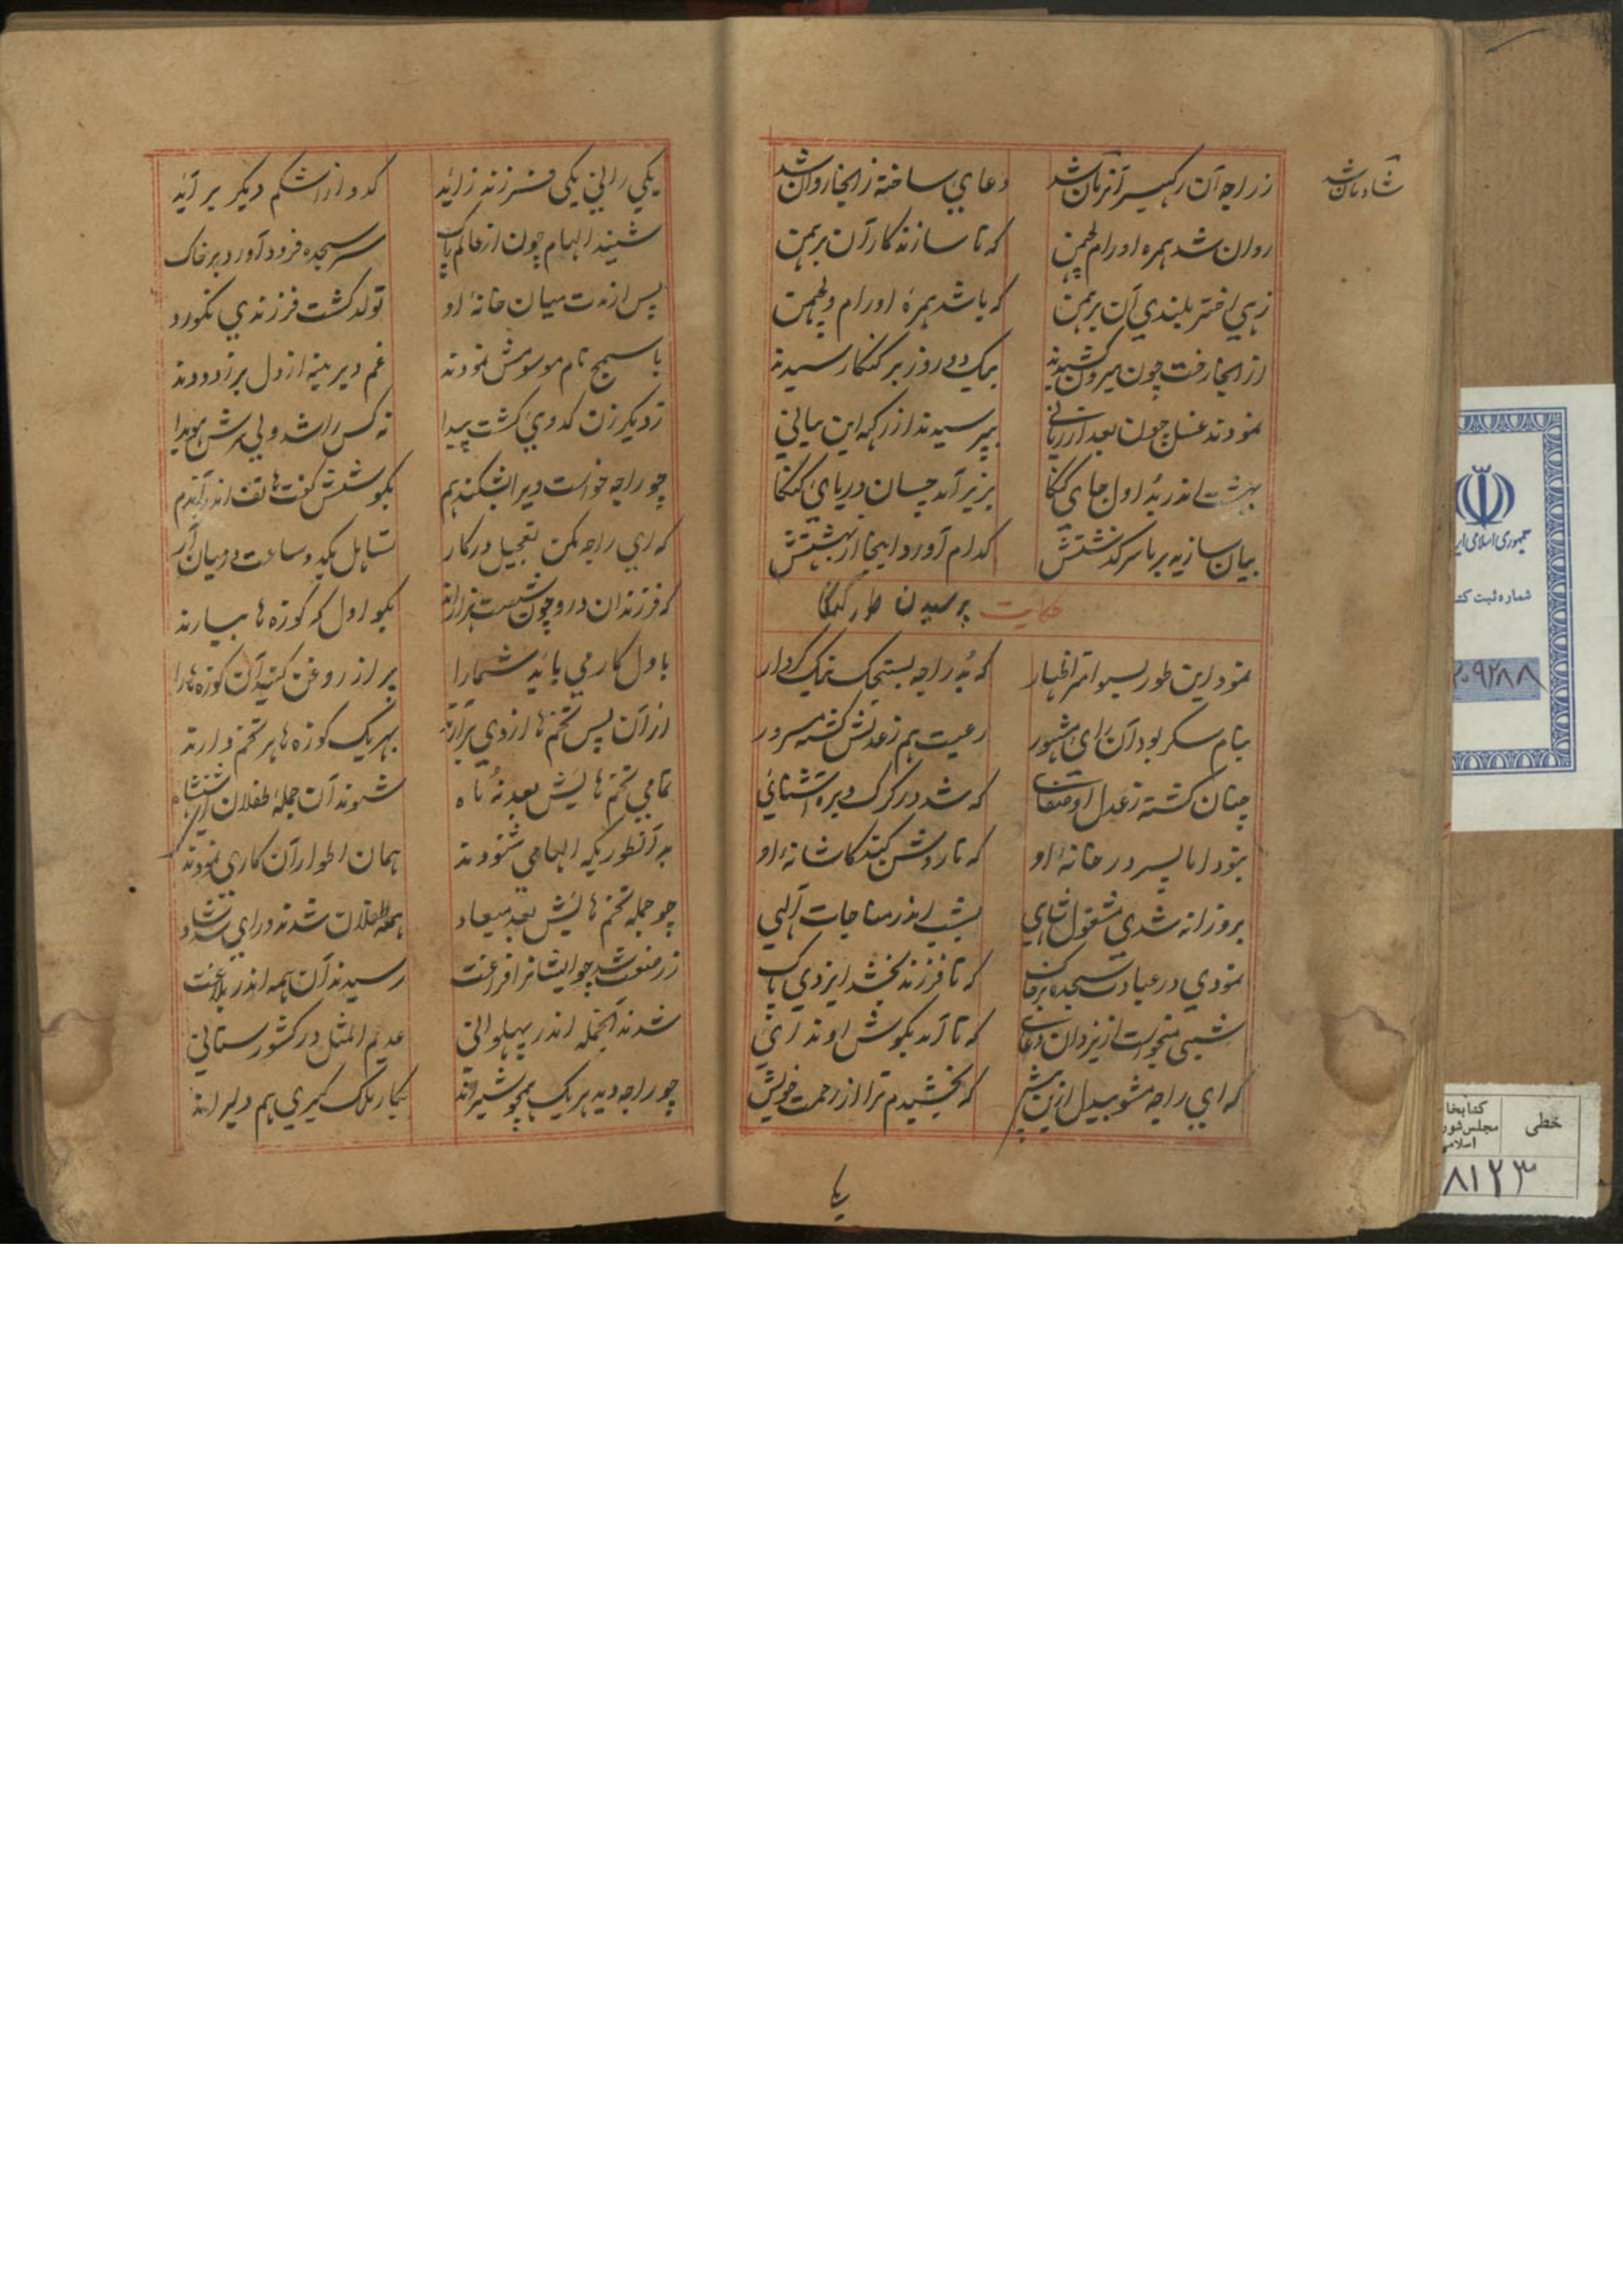 شادمان شد
ز راجه آن رکهیسر آنزمان شد
دعای ساخته زانجا روان شد
روان شد همره او رام لچمن
که تا سازند کار آن برهمن
زهی اختر بلندی آن برهمن
که باشد همره او رام و لچمن
از انجا رفت چون بیرون کشیدند
بیک دو روز بر کنکا رسیدند
نمودند غسل چون بعد از زمانی
بپرسیدند از رکهه این بیانی
بهشت اندر بُد اول جای کنکا
بزیر آمد چسان دریای کنکا
بیان سازید بر ما سرکذشتش
کدام آورد اینجا از بهشتش
حکایت پرسیدن طور کنکا
نمود این طور بسوامتر اظهار
که بُد راجه یستجک نیک کردار
بنام سکر بود آن رای مشهور
رعیت هم ز عدلش کشته مسرور
چنان کشته ز عدل او صفای
که شد در کرک و بره آشنائی
نبود اما پسر در خانهٔ او
که تا روشن کند کاشانهٔ او
بروزانه شدی مشغول شاهی
بشب اندر مناجات آلهی
نمودی در عبادت سجده بر خاک
که تا فرزند بخشد ایزدی پاک
شبی میخواست از یزدان دعای
که تا آمد بکوش او ندای
که ای راجه مشو بیدل ازین بیش
که بخشیدم ترا از رحمت خویش
یکی رانی یکی فرزند زاید
کدو از اشکم دیکر برآید
شنید الهام چون از عالم پاک
سر سجده فرود آورد بر خاک
پس از مدت میان خانهٔ او
تولد کشت فرزندی نکورو
باسمیج نام موسومش نمودند
غم دیرینه از دل بر زدودند
ز دیکر زن کدوی کشت پیدا
نه کس را شد ولی سرش هویدا
چو راجه خواست ویرا بشکند هم
بکوشش کفت هاتف اندر آندم
که ای راجه مکن تعجیل در کار
تساهل یکدو ساعت در میان آر
که فرزندان درو چون شصت هزارند
بکو اول که کوزه ها بیارند
باول کار می باید شما را
پر از روغن کنید آن کوزه ها را
از آن پس تخم ها از وی برآرند
بهر یک کوزه ها هر تخم دارند
تمامی تخم هایش بعد نُه ماه
شوند آن جملهٔ طفلان
بدآنطوریکه الهامی شنودند
همان اطوار آن کاری نمودند
چو جمله تخم هایش بعد میعاد
همه طفلان شدند و رای شد شاد
ز رضعت شد چو ایشانرا فراغت
رسیدند آن همه اندر بلاغت
شدند آنجمله اندر پهلوانی
عدیم المثل در کشورستانی
چو راجه دید هر یک همچو شیراند
بکار ملک کیری هم دلیراند
جمهوری اسلامی ایر
شماره ثبت کتـ
۲۰۹۲۸۸
خطی
کتابخا
مجلس شور
اسلامی
۸۱۲۳